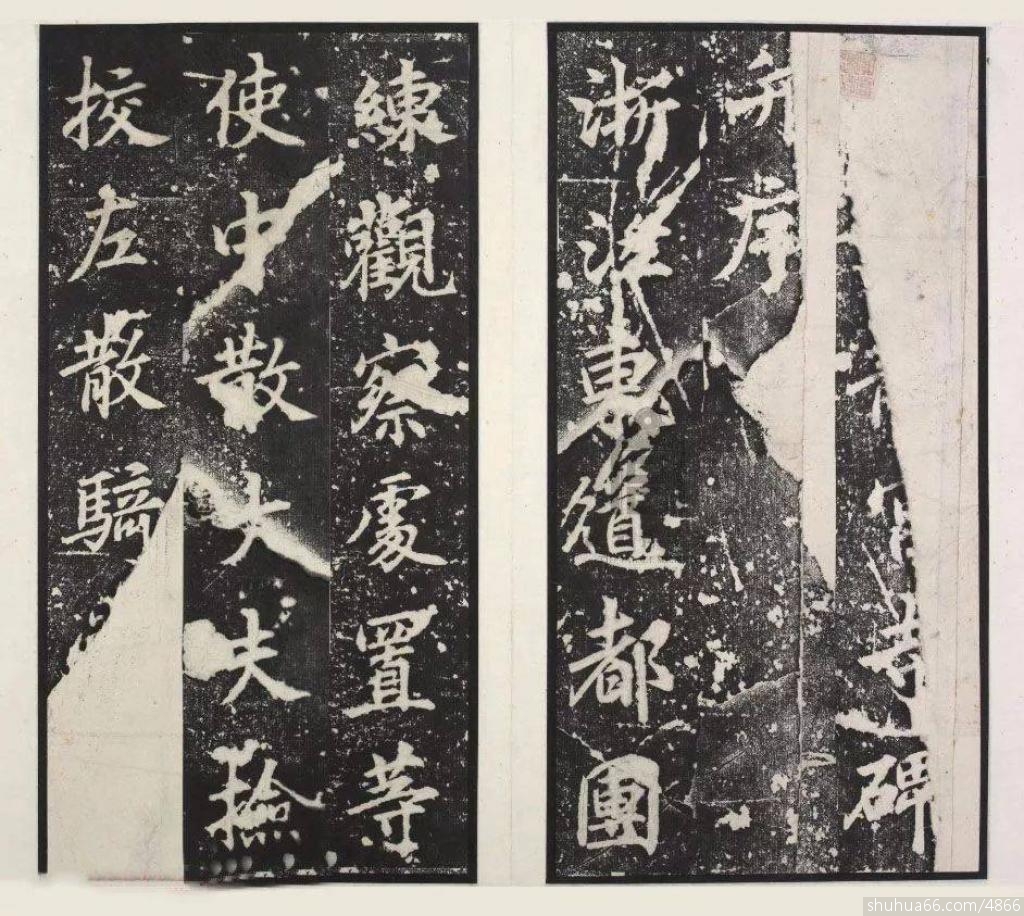 寺碑
并序
浙江東道都團
練觀察處置等
使中散大夫撿
挍左散騎
shuhua66.com/4866